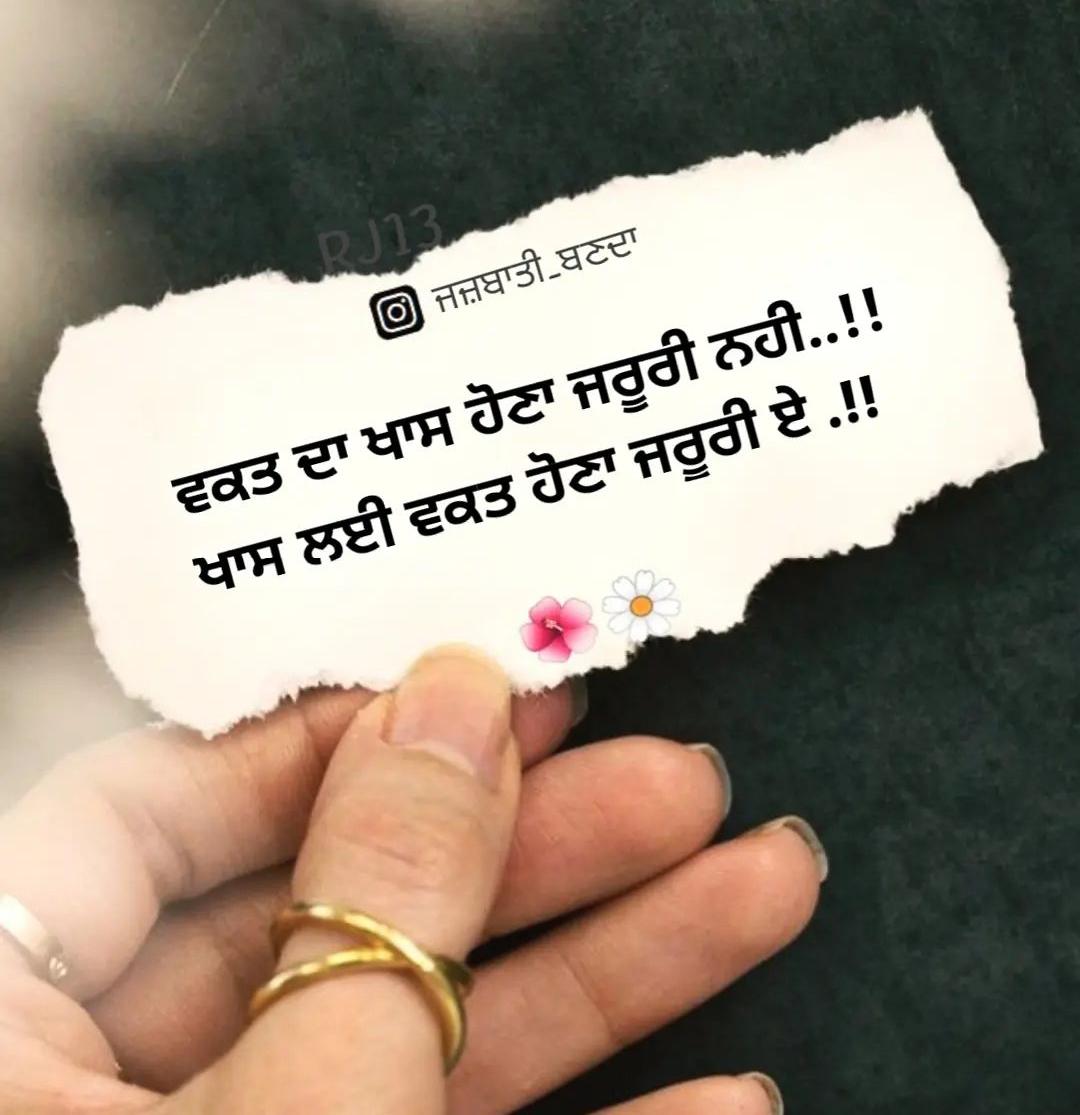 RJ13
ਜਜ਼ਬਾਤੀ_ਬਣਦਾ
ਵਕਤ ਦਾ ਖਾਸ ਹੋਣਾ ਜਰੂਰੀ ਨਹੀ..!!
ਖਾਸ ਲਈ ਵਕਤ ਹੋਣਾ ਜਰੂਰੀ ਏ .!!